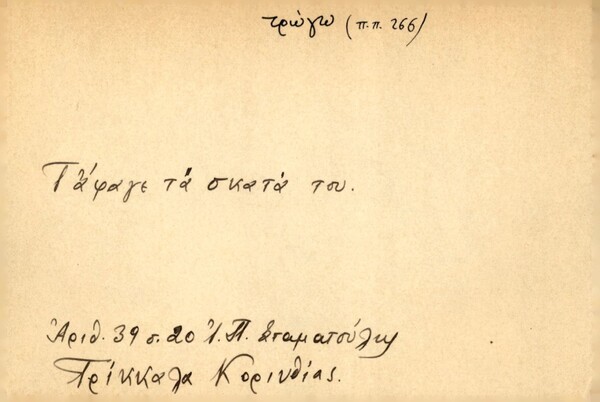 τρώγω (π.π. 266)
Τἄφαγε τά σκατά του.
Ἀριθ. 39 σ. 20 Ἰ. Π. Σταματούλης
Τρίκκαλα Κορινθίας.